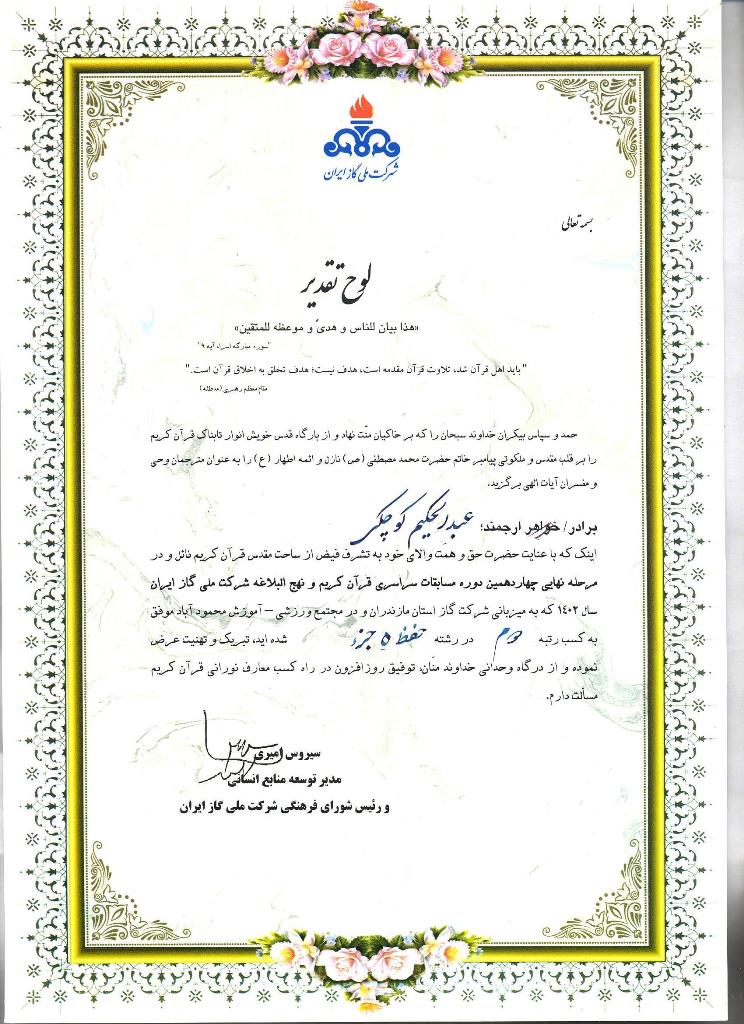 شرکت ملی گاز ایران
بسمه تعالی
لوح تقدیر
«هذا بیان للناس و هدیً و موعظه للمتقین»
"سوره مبارکه اسراء آیه ۹"
"باید اهل قرآن شد، تلاوت قرآن مقدمه است، هدف نیست؛ هدف تخلق به اخلاق قرآن است."
مقام معظم رهبری (مدظله)
حمد و سپاس بیکران خداوند سبحان را که بر خاکیان منّت نهاد و از بارگاه قدس خویش انوار تابناک قرآن کریم
را بر قلب مقدس و ملکوتی پیامبر خاتم حضرت محمد مصطفی (ص) نازل و ائمه اطهار (ع) را به عنوان مترجمان وحی
و مفسران آیات الهی برگزید.
برادر/ خواهر ارجمند؛ عبدالحکیم کوچکی
اینک که با عنایت حضرت حق و همت والای خود به تشرف فیض از ساحت مقدس قرآن کریم نائل و در
مرحله نهایی چهاردهمین دوره مسابقات سراسری قرآن کریم و نهج البلاغه شرکت ملی گاز ایران
سال ۱۴۰۲ که به میزبانی شرکت گاز استان مازندران و در مجتمع ورزشی – آموزش محمود آباد موفق
به کسب رتبه دوم در رشته حفظ ۵ جزء شده اید، تبریک و تهنیت عرض
نموده و از درگاه وحدانی خداوند منّان، توفیق روزافزون در راه کسب معارف نورانی قرآن کریم
مسألت دارم.
سیروس امیری
مدیر توسعه منابع انسانی
و رئیس شورای فرهنگی شرکت ملی گاز ایران